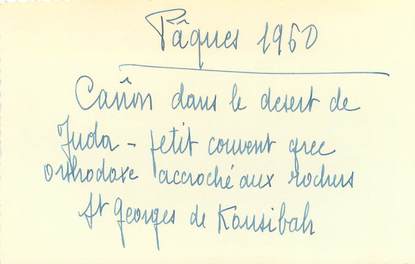 Pâques 1960
Cañon dans le desert de
Juda - petit couvent grec
orthodoxe accroché aux rochers
St Georges de Kousibah